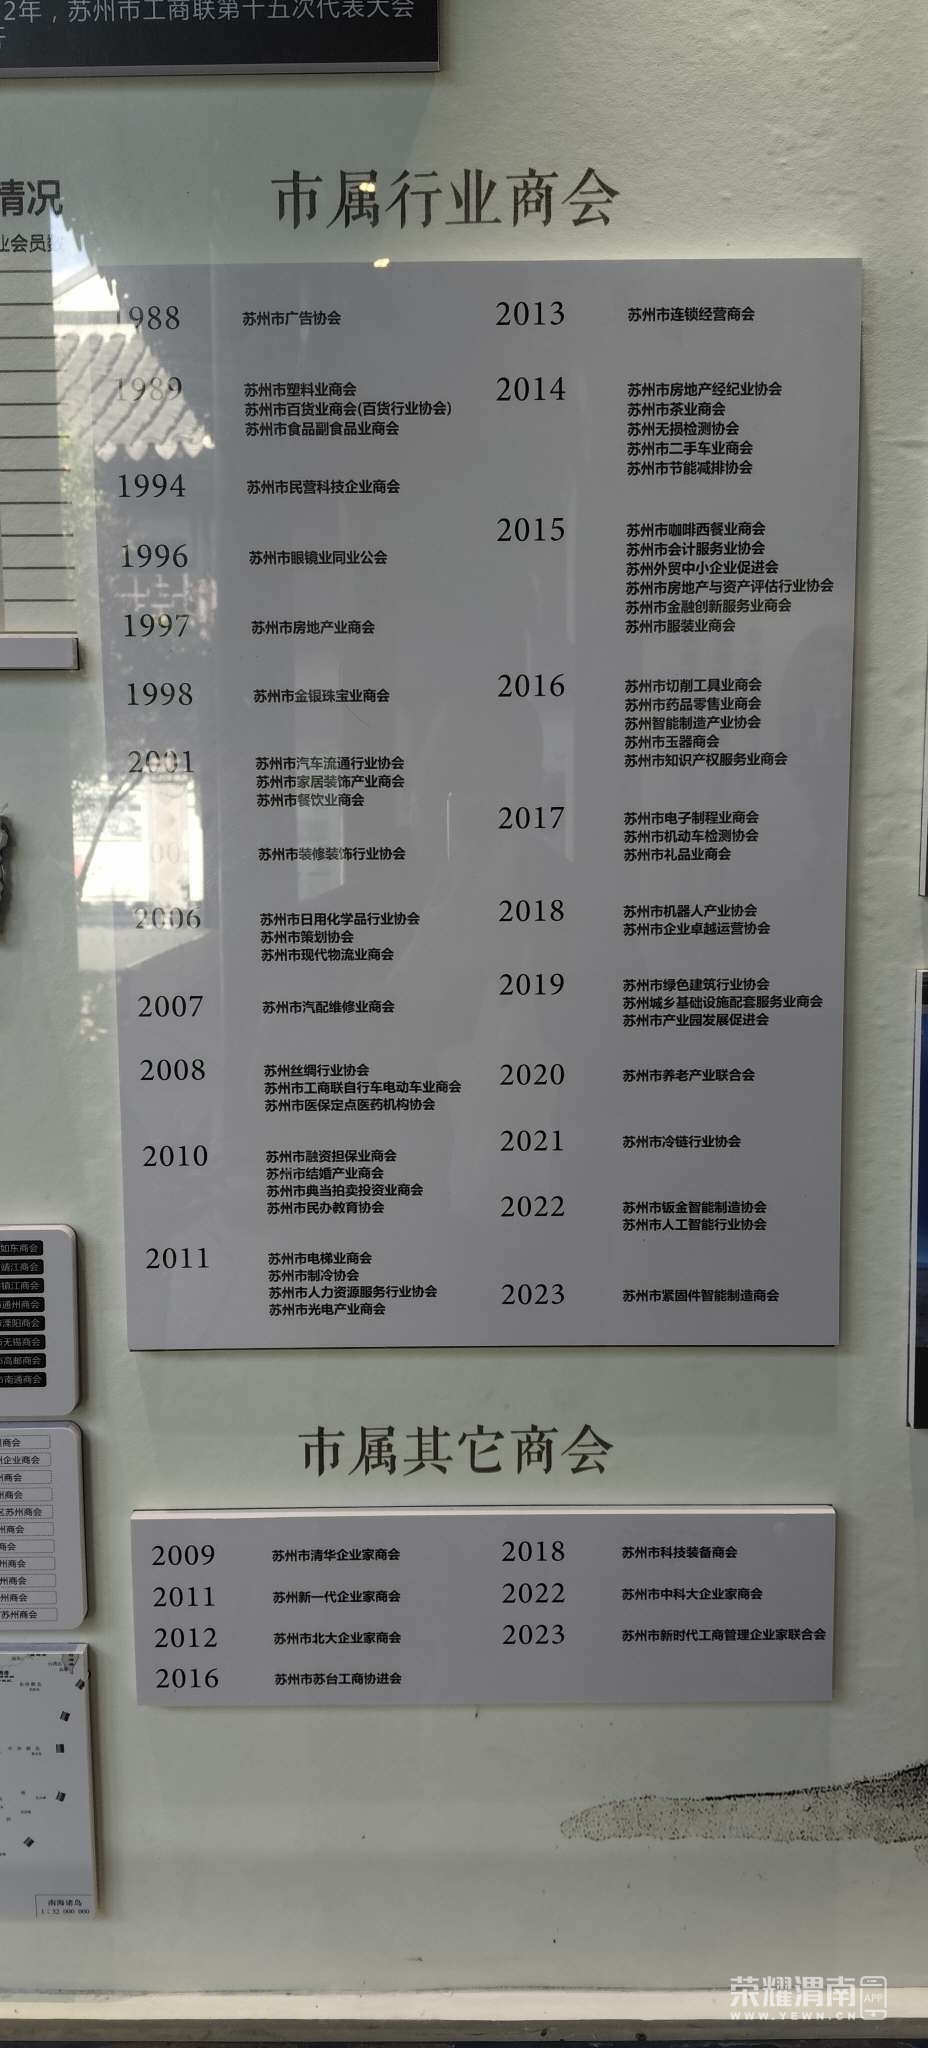 2年，苏州市工商联第十五次代表大会
情况
业会员数
市属行业商会
1988 苏州市广告协会
1989 苏州市塑料业商会
苏州市百货业商会(百货行业协会)
苏州市食品副食品业商会
1994 苏州市民营科技企业商会
1996 苏州市眼镜业同业公会
1997 苏州市房地产业商会
1998 苏州市金银珠宝业商会
2001 苏州市汽车流通行业协会
苏州市家居装饰产业商会
苏州市餐饮业商会
苏州市装修装饰行业协会
2006 苏州市日用化学品行业协会
苏州市策划协会
苏州市现代物流业商会
2007 苏州市汽配维修业商会
2008 苏州丝绸行业协会
苏州市工商联自行车电动车业商会
苏州市医保定点医药机构协会
2010 苏州市融资担保业商会
苏州市结婚产业商会
苏州市典当拍卖投资业商会
苏州市民办教育协会
2011 苏州市电梯业商会
苏州市制冷协会
苏州市人力资源服务行业协会
苏州市光电产业商会
2013 苏州市连锁经营商会
2014 苏州市房地产经纪业协会
苏州市茶业商会
苏州无损检测协会
苏州市二手车业商会
苏州市节能减排协会
2015 苏州市咖啡西餐业商会
苏州市会计服务业协会
苏州外贸中小企业促进会
苏州市房地产与资产评估行业协会
苏州市金融创新服务业商会
苏州市服装业商会
2016 苏州市切削工具业商会
苏州市药品零售业商会
苏州智能制造产业协会
苏州市玉器商会
苏州市知识产权服务业商会
2017 苏州市电子制程业商会
苏州市机动车检测协会
苏州市礼品业商会
2018 苏州市机器人产业协会
苏州市企业卓越运营协会
2019 苏州市绿色建筑行业协会
苏州城乡基础设施配套服务业商会
苏州市产业园发展促进会
2020 苏州市养老产业联合会
2021 苏州市冷链行业协会
2022 苏州市钣金智能制造协会
苏州市人工智能行业协会
2023 苏州市紧固件智能制造商会
如东商会
靖江商会
镇江商会
通州商会
溧阳商会
无锡商会
高邮商会
南通商会
市属其它商会
2009 苏州市清华企业家商会
2011 苏州新一代企业家商会
2012 苏州市北大企业家商会
2016 苏州市苏台工商协进会
2018 苏州市科技装备商会
2022 苏州市中科大企业家商会
2023 苏州市新时代工商管理企业家联合会
商会
企业商会
州商会
州商会
区苏州商会
州商会
商会
州商会
州商会
州商会
苏州商会
南海诸岛
1：32 000 000
荣耀渭南APP
WWW.YEWN.CN